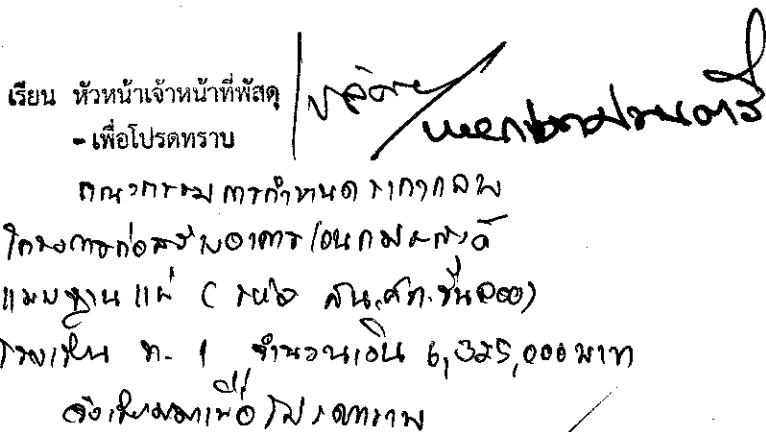 เรียน หัวหน้าเจ้าหน้าที่พัสดุ / ปลัดฯ / นายกเทศมนตรี
- เพื่อโปรดทราบ
คณะกรรมการกำหนดราคากลาง
โครงการก่อสร้างอาคารอเนกประสงค์
แบบฐานแผ่ (รหัส สน.ศท.
โรงเรียน ท. 1 จำนวนเงิน 6,325,000 บาท
จึงเรียนมาเพื่อโปรดทราบ